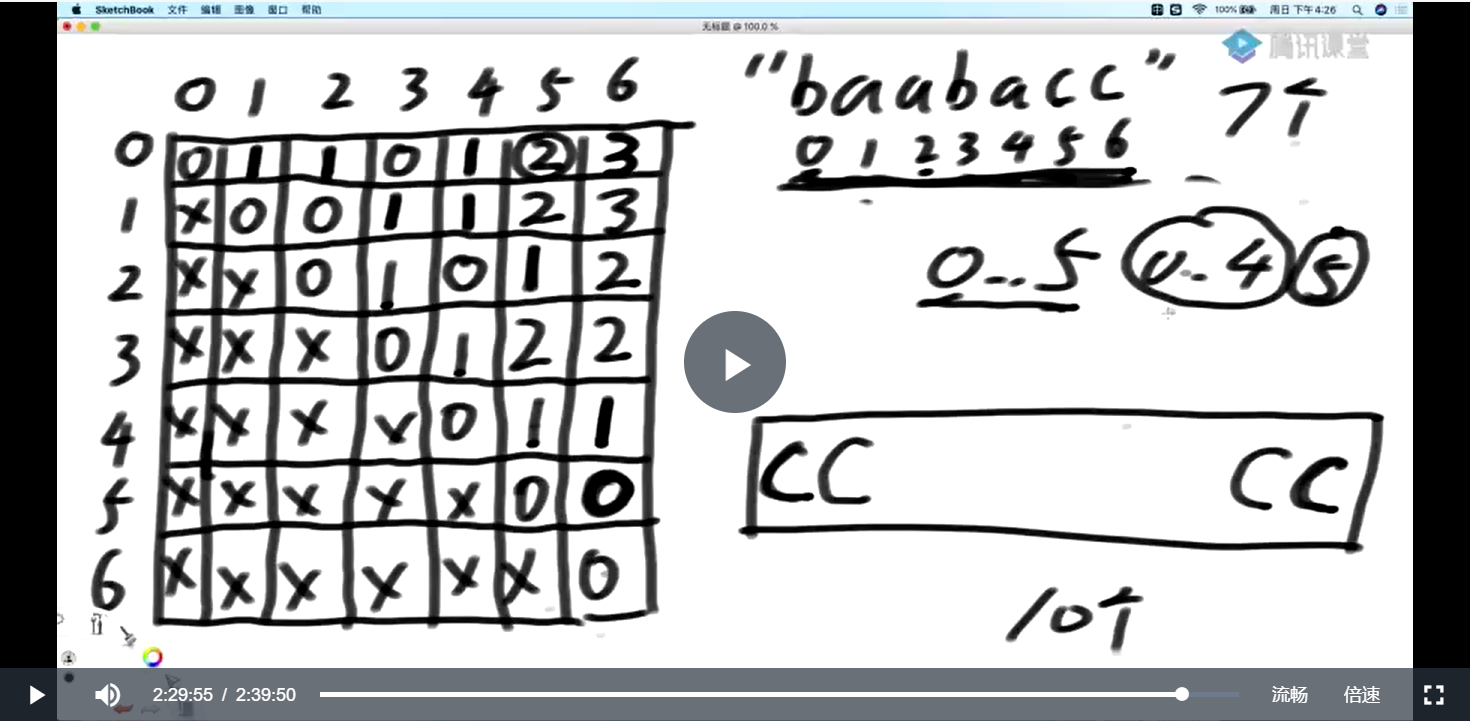 SketchBook 文件 编辑 图像 窗口 帮助 100% 周日 下午4:26
无标题 @ 100.0 %
腾讯课堂
0 1 2 3 4 5 6
0 0 1 1 0 1 2 3
1 x 0 0 1 1 2 3
2 x x 0 1 0 1 2
3 x x x 0 1 2 2
4 x x x x 0 1 1
5 x x x x x 0 0
6 x x x x x x 0
"baabacc" 7个
0 1 2 3 4 5 6
0...5 0..4 5
CC CC
10个
2:29:55 / 2:39:50 流畅 倍速